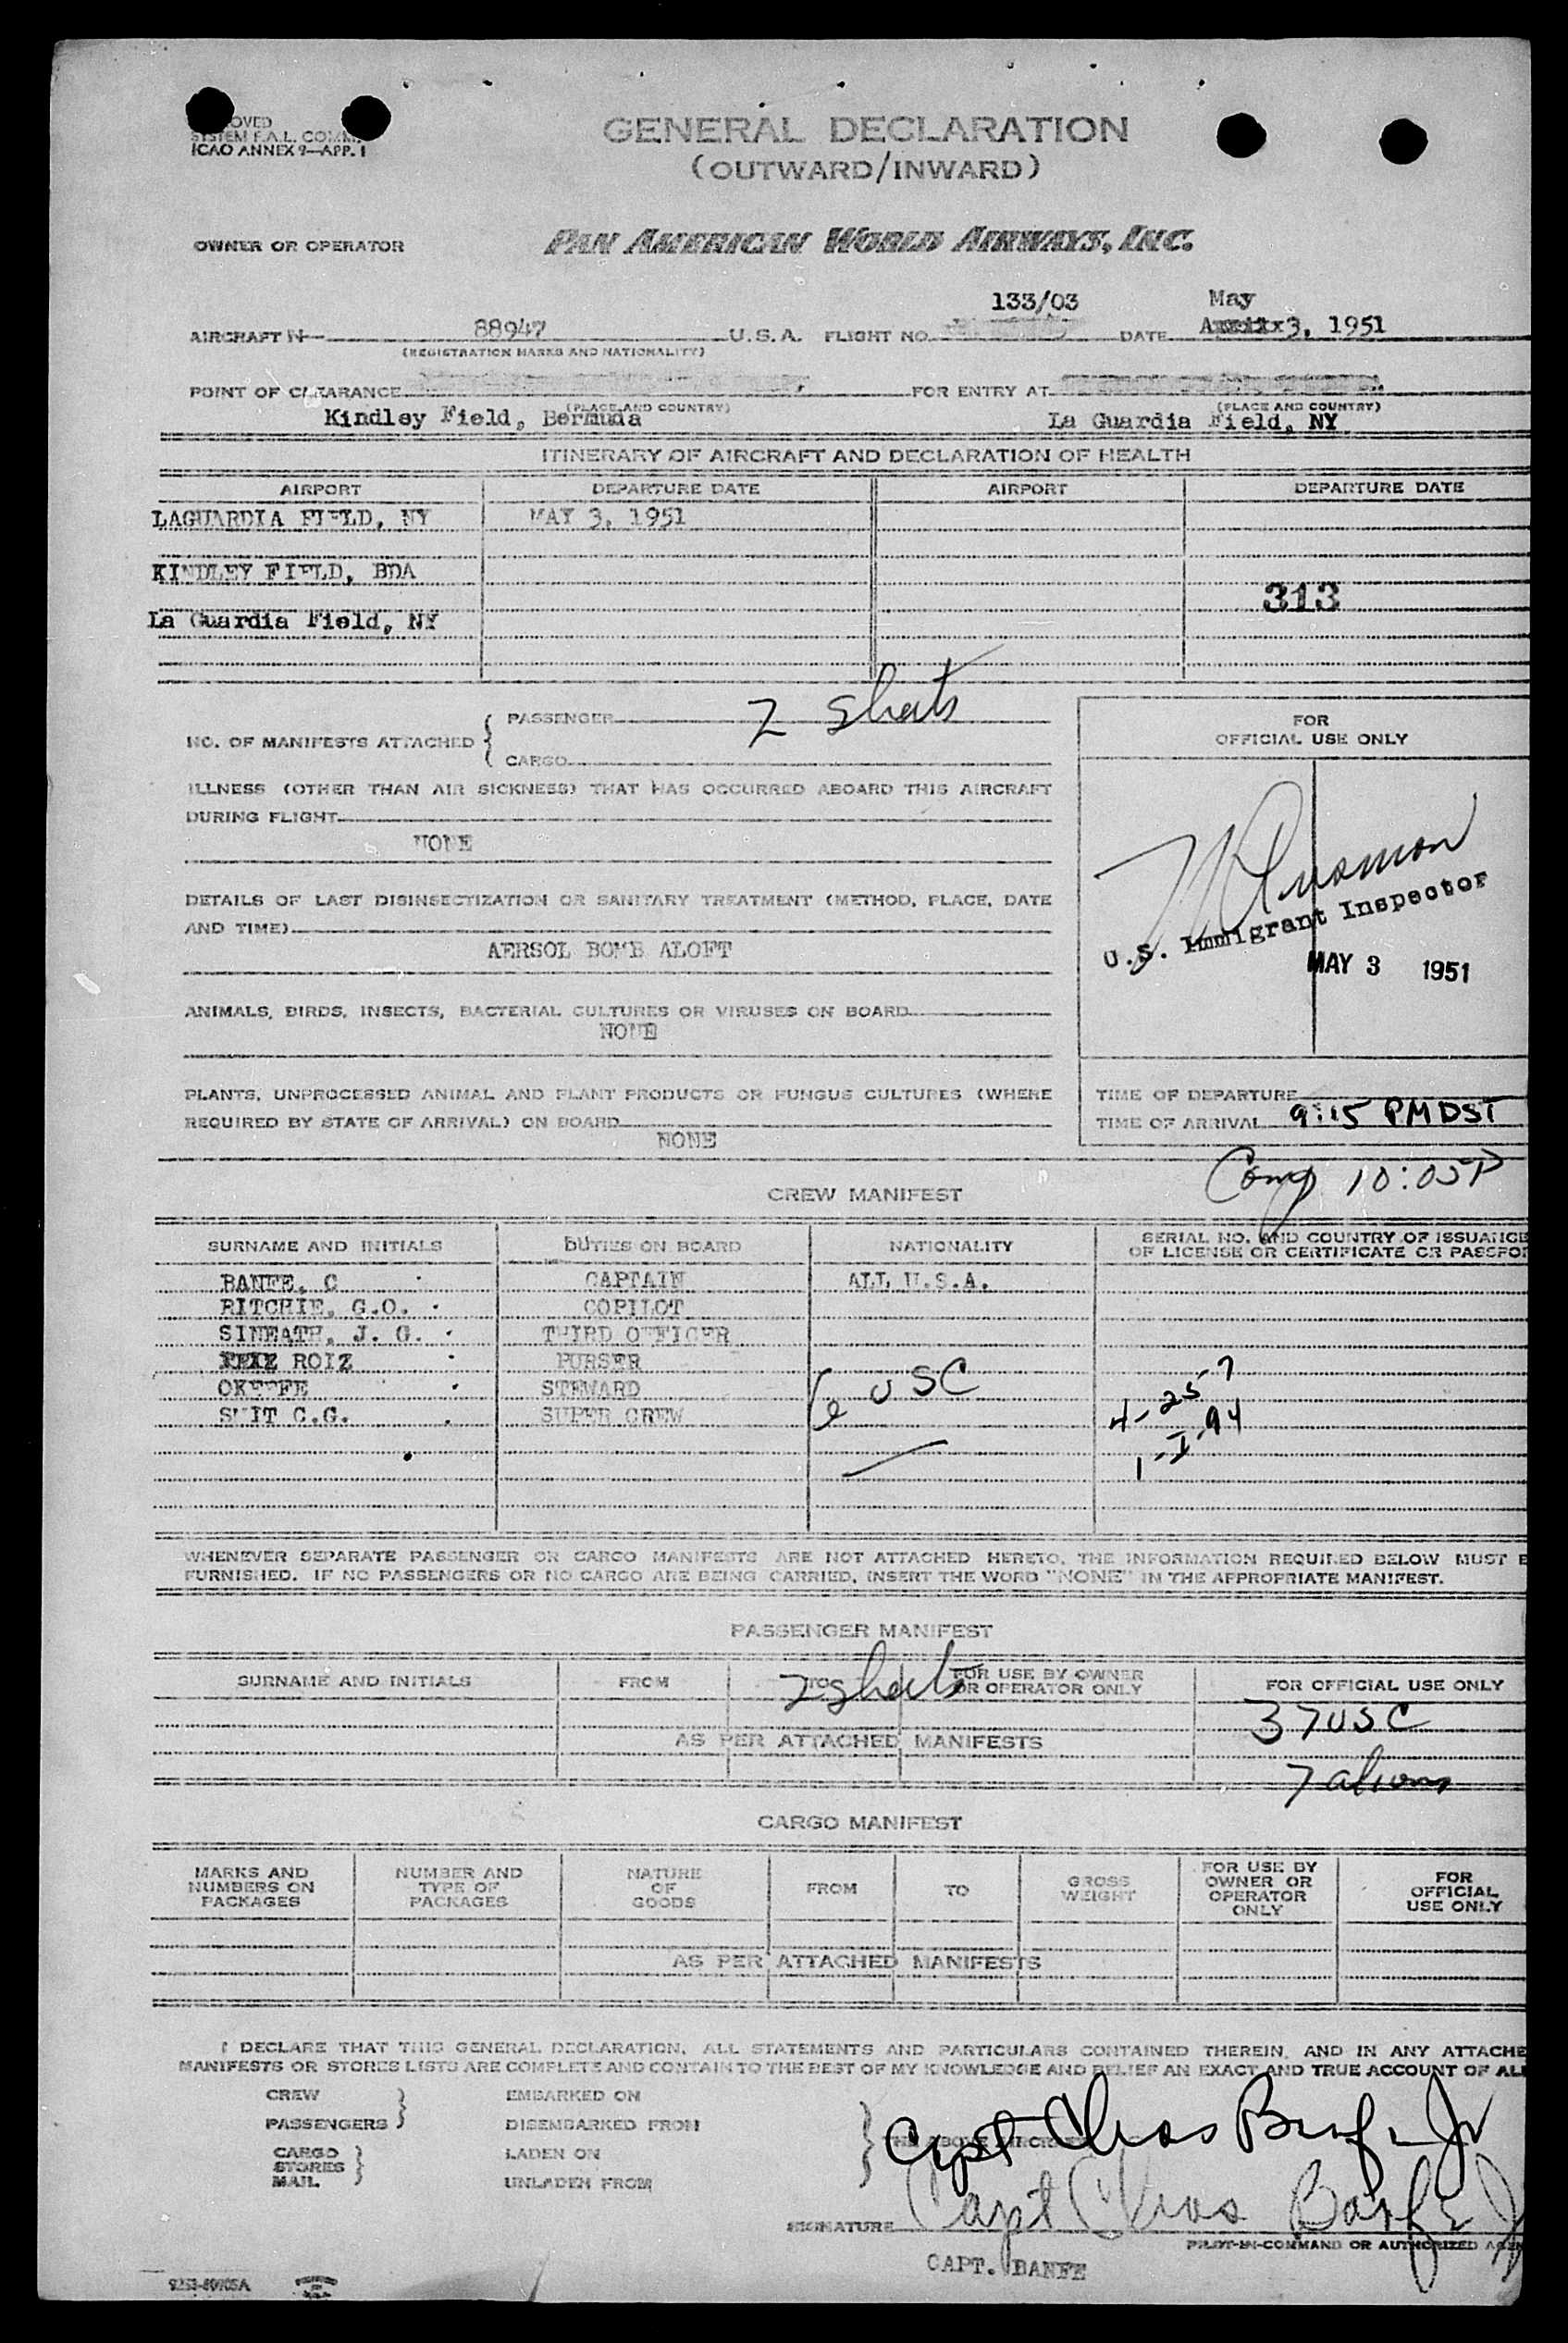 SYSTEM F.A.L. COMM.
ICAO ANNEX 9—APP. 1
GENERAL DECLARATION
(OUTWARD/INWARD)
OWNER OR OPERATOR PAN AMERICAN WORLD AIRWAYS, INC.
133/03 May
AIRCRAFT N 88947 U.S.A. FLIGHT NO. DATE 3, 1951
(REGISTRATION MARKS AND NATIONALITY)
POINT OF CLEARANCE FOR ENTRY AT
(PLACE AND COUNTRY) (PLACE AND COUNTRY)
Kindley Field, Bermuda La Guardia Field, NY
ITINERARY OF AIRCRAFT AND DECLARATION OF HEALTH
AIRPORT DEPARTURE DATE AIRPORT DEPARTURE DATE
LAGUARDIA FIELD, NY MAY 3, 1951
KINDLEY FIELD, BDA
313
La Guardia Field, NY
NO. OF MANIFESTS ATTACHED { PASSENGER 2 sheets
CARGO
FOR
OFFICIAL USE ONLY
ILLNESS (OTHER THAN AIR SICKNESS) THAT HAS OCCURRED ABOARD THIS AIRCRAFT
DURING FLIGHT
NONE
DETAILS OF LAST DISINSECTIZATION OR SANITARY TREATMENT (METHOD, PLACE, DATE
AND TIME)
AERSOL BOMB ALOFT
U.S. Immigrant Inspector
MAY 3 1951
ANIMALS, BIRDS, INSECTS, BACTERIAL CULTURES OR VIRUSES ON BOARD
NONE
PLANTS, UNPROCESSED ANIMAL AND PLANT PRODUCTS OR FUNGUS CULTURES (WHERE
REQUIRED BY STATE OF ARRIVAL) ON BOARD
NONE
TIME OF DEPARTURE
TIME OF ARRIVAL 9:15 PM DST
Comp 10:05P
CREW MANIFEST
SURNAME AND INITIALS DUTIES ON BOARD NATIONALITY SERIAL NO. AND COUNTRY OF ISSUANCE
OF LICENSE OR CERTIFICATE OR PASSPOR
BANFE, C CAPTAIN ALL U.S.A.
RITCHIE, G.O. COPILOT
SINEATH, J. G. THIRD OFFICER
ROIZ PURSER
OKEEFE STEWARD 6 USC 4-25-7
C.G. SUPER CREW 1-I-94
WHENEVER SEPARATE PASSENGER OR CARGO MANIFESTS ARE NOT ATTACHED HERETO, THE INFORMATION REQUIRED BELOW MUST B
FURNISHED. IF NO PASSENGERS OR NO CARGO ARE BEING CARRIED, INSERT THE WORD "NONE" IN THE APPROPRIATE MANIFEST.
PASSENGER MANIFEST
SURNAME AND INITIALS FROM TO FOR USE BY OWNER
OR OPERATOR ONLY FOR OFFICIAL USE ONLY
2 sheets
37 USC
AS PER ATTACHED MANIFESTS
7 aliens
CARGO MANIFEST
MARKS AND
NUMBERS ON
PACKAGES NUMBER AND
TYPE OF
PACKAGES NATURE
OF
GOODS FROM TO GROSS
WEIGHT FOR USE BY
OWNER OR
OPERATOR
ONLY FOR
OFFICIAL
USE ONLY
AS PER ATTACHED MANIFESTS
I DECLARE THAT THIS GENERAL DECLARATION, ALL STATEMENTS AND PARTICULARS CONTAINED THEREIN, AND IN ANY ATTACHE
MANIFESTS OR STORES LISTS ARE COMPLETE AND CONTAIN TO THE BEST OF MY KNOWLEDGE AND BELIEF AN EXACT AND TRUE ACCOUNT OF ALL
CREW EMBARKED ON
PASSENGERS DISEMBARKED FROM
THE ABOVE AIRCRAFT
CARGO LADEN ON
STORES
MAIL UNLADEN FROM
Capt Chas Banfe Jr
Capt Chas Banfe Jr
SIGNATURE
PILOT-IN-COMMAND OR AUTHORIZED AGEN
CAPT. BANFE